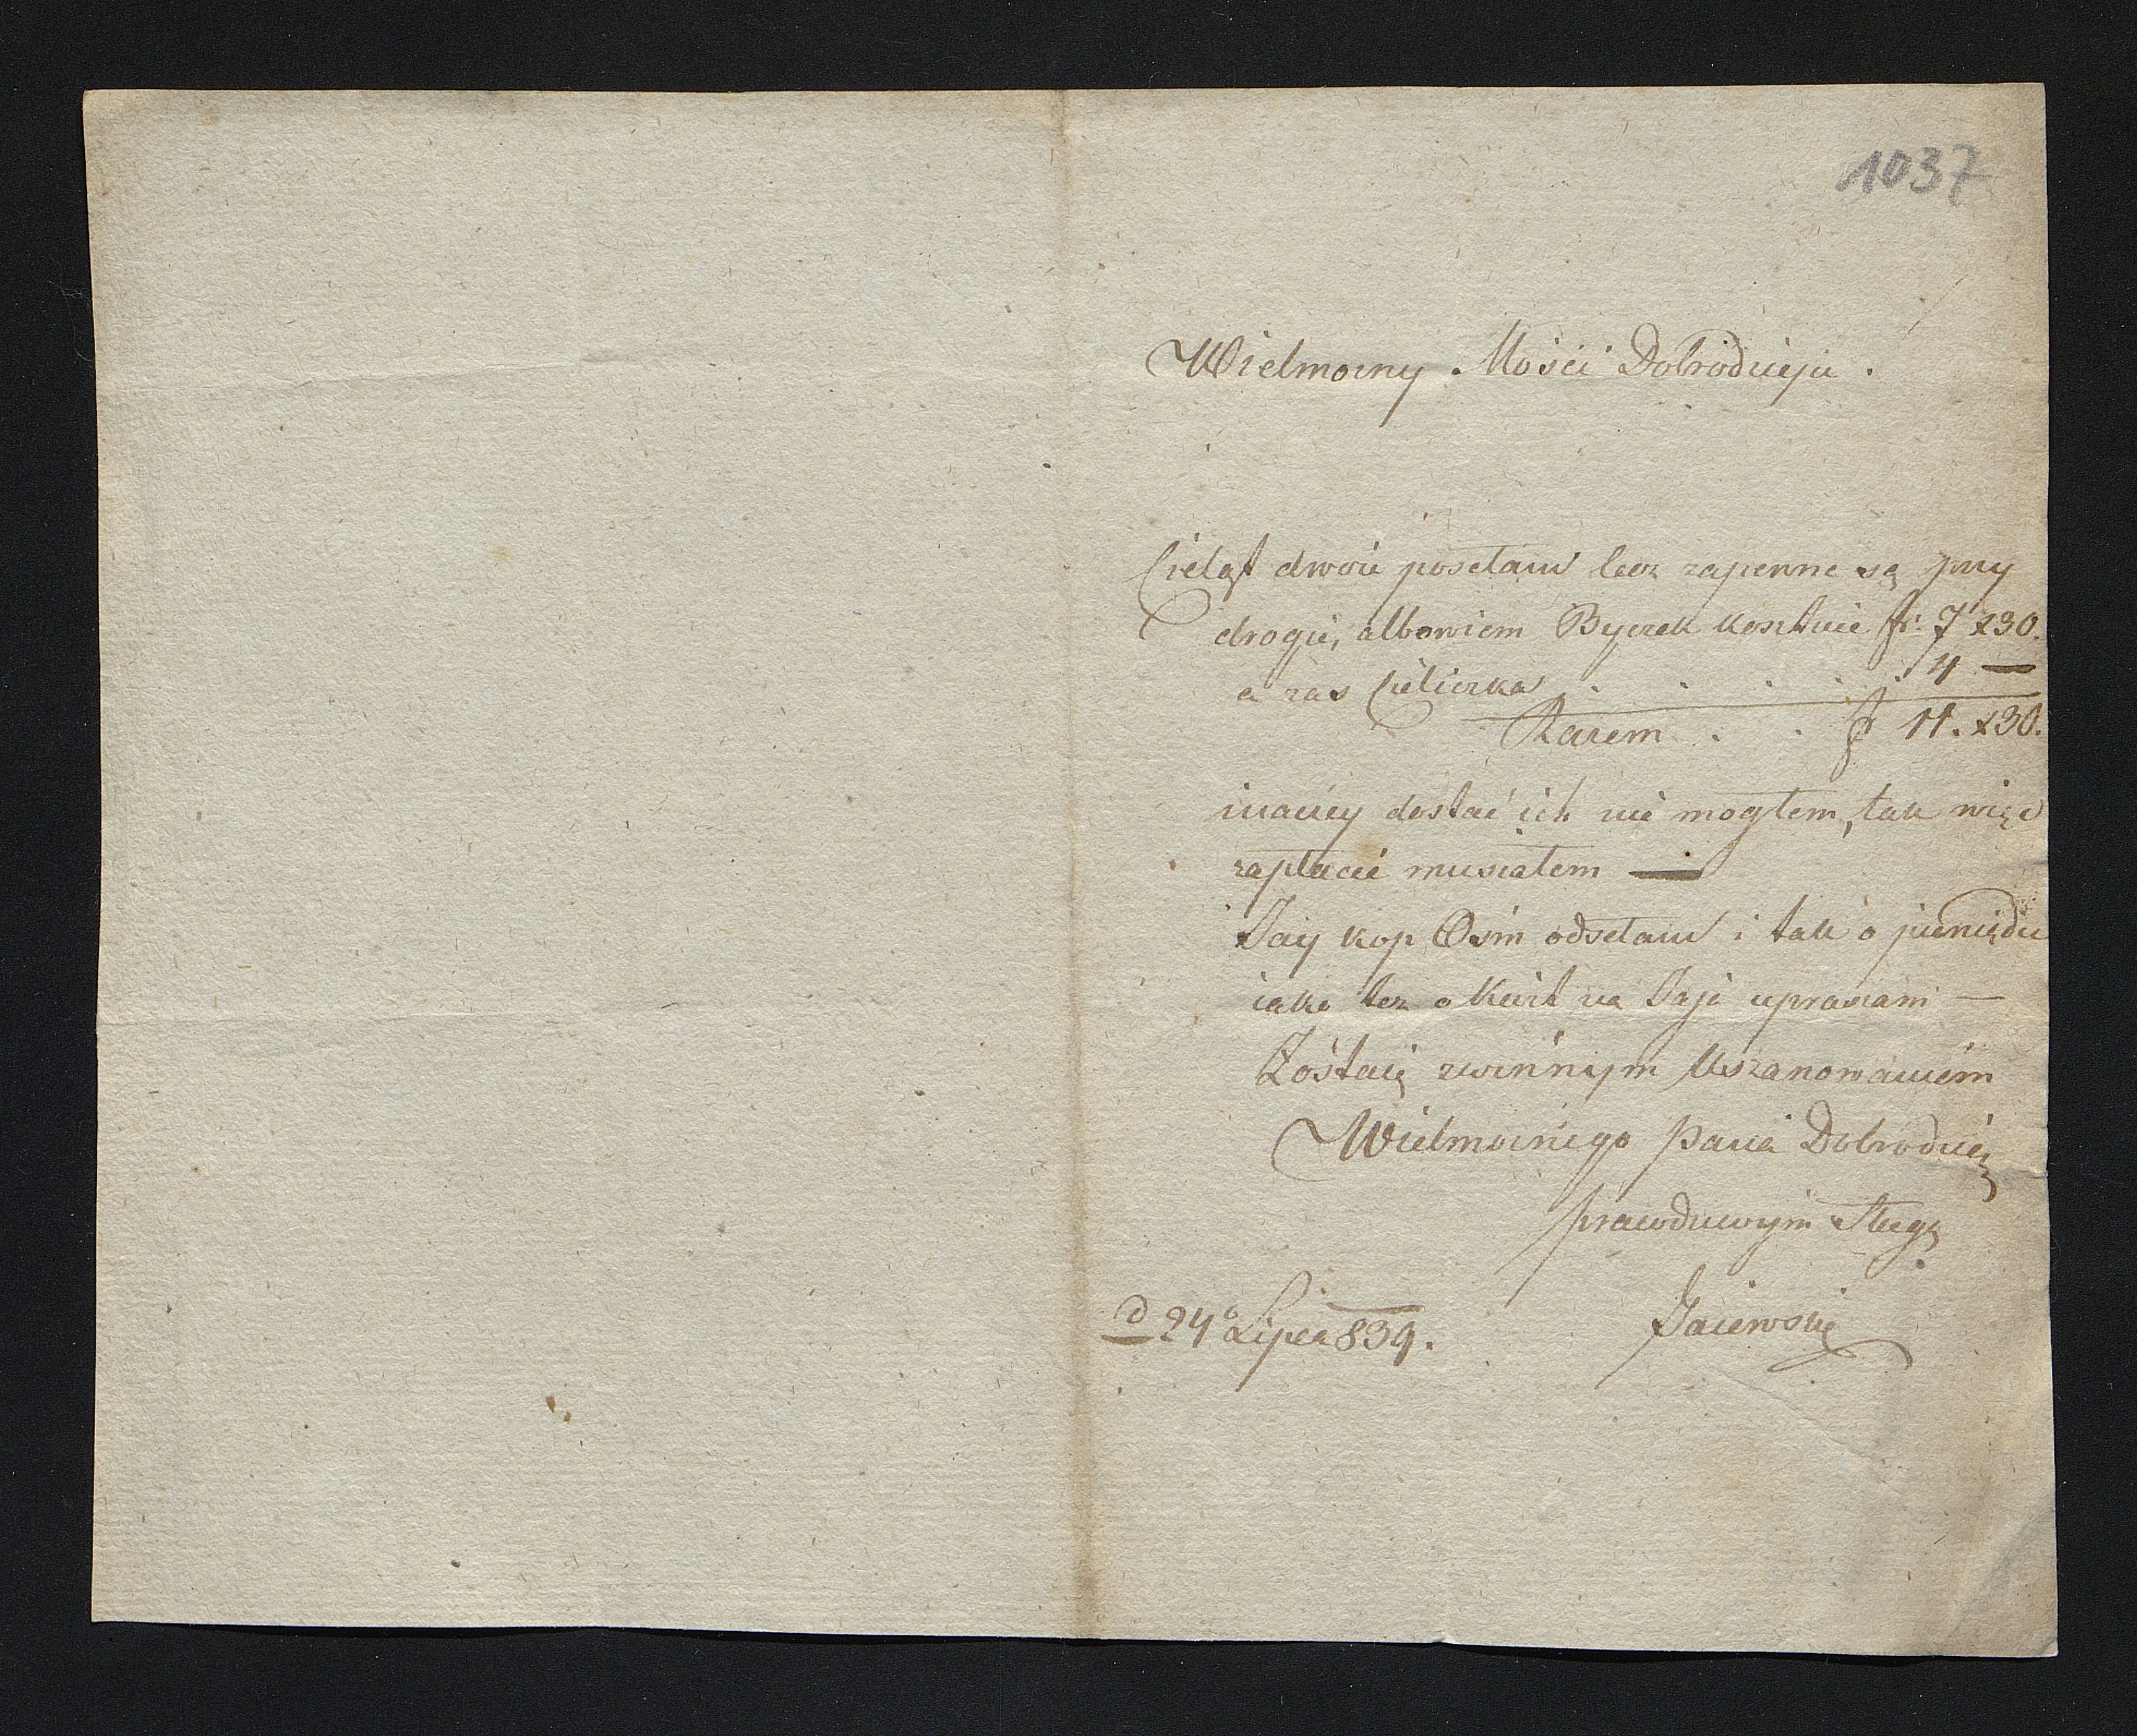 1037
Wielmożny Mości Dobrodzieju.
Cieląt dwóie poselam lecz zapewne są przy
drogie, albowiem Byczek kosztuie fr. 7 x30.
a zas Cieliczka . . . . . 4 —
Razem . . f 11. x30.
inaczey dostać ich nie mogłem, tak więc
zapłacić musiałem —
Jay kop Osm odselam i tak o pieniądze
iako tez o Kwit na Jaja upraszam —
Zostaię zwinnym Uszanowaniem
Wielmożnego Pana Dobrodzieia
prawdziwym Sługą
d 24º Lipca 839. Jaiewski